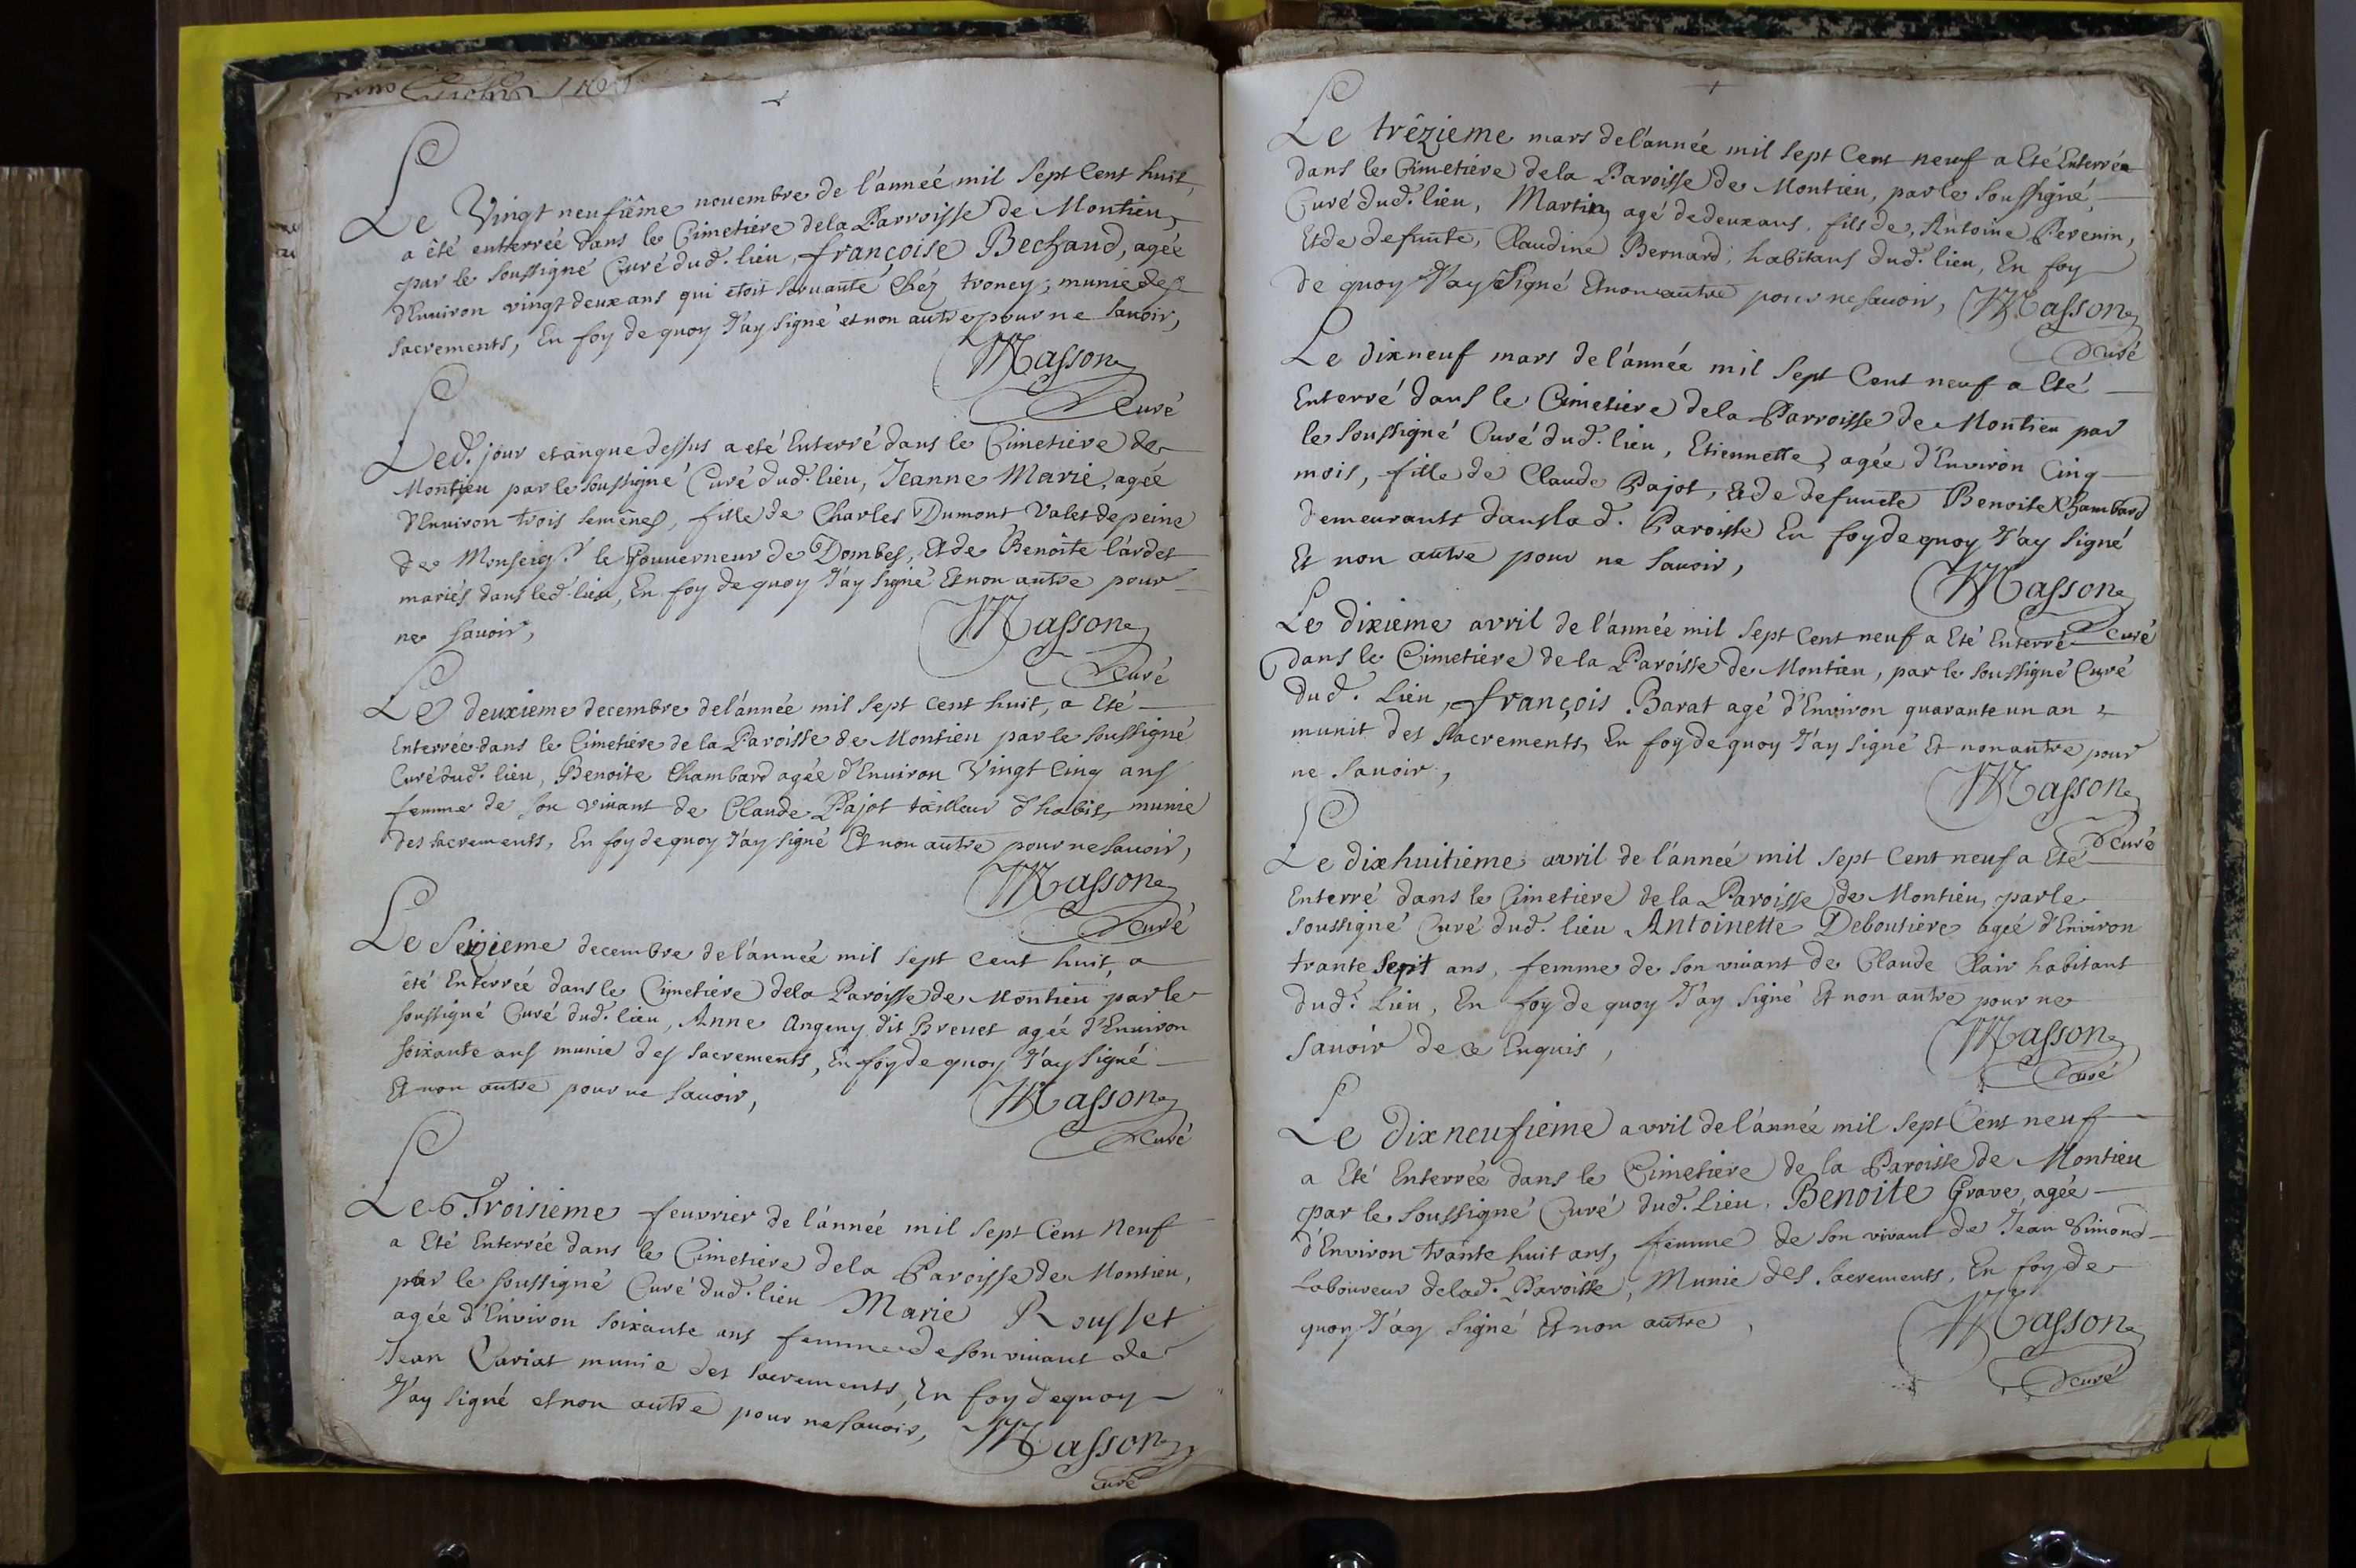 Le Vingt neufiême nouembre de l'anneé mil sept cent huit,
a êté entterreé dans le Cimetiére dela Parroisse de Montieu,
par le soussigné Curé dud. lieu, françoise Bechaud, agée
d'Enuiron vingt deux ans qui etoit seruante Chéz troney, munie des
sacrements, En foy de quoy J'ay signé et non autre pour ne sauoir,
Masson
Curé
Led. jour et an que dessus a eté Enterré dans le Cimetiére de
Montieu par le soussigné Curé dud. lieu, Jeanne Marie, agée
d'Enuiron trois semênes, fille de Charles Dumont Valet de peine
de Monseigr. le Gouuerneur de Dombes, Et de Benôite lardet
mariés dans led. lieu, En foy de quoy J'ay signé Et non autre pour
ne sauoir,
Masson
Curé
Le deuxieme decembre de l'année mil sept cent huit, a Eté
Enterrée dans le Cimetiére de la Paroisse de Montieu par le soussigné
Curé dud. lieu, Benoite Chambard agée d'Enuiron Vingt Cinq ans
femme de son viuant de Claude Pajot tailleur d'habit, munie
des sacrements, En foy de quoy J'ay signé Et non autre pour ne sauoir,
Masson
Curé
Le Seizieme decembre de l'année mil sept cent huit, a
êté Enterreé dans le Cimetiére dela Paroisse de Montieu par le
soussigné Curé dud. lieu, Anne Angeny dit Breuet agée d'Enuiron
soixante ans munie des sacrements, En foy de quoy J'ay signé
Et non autre pour ne sauoir,
Masson
Curé
Le Troisieme feuvrier de l'année mil sept Cent Neuf
a Eté Enterrée dans le Cimetiére dela Paroisse de Montieu,
par le soussigné Curé dud. lieu Marie Rousset
agée d'Enuiron soixante ans femme de son viuant de
Jean Variat munie des sacrements, En foy de quoy
J'ay signé et non autre pour ne sauoir,
Masson
Curé
Le trêzieme mars de l'année mil sept Cent neuf a Eté Enterrée
dans le Cimetiére dela Paroisse de Montieu, par le soussigné,
Curé dud. lieu, Martin agé de deux ans, fils de, Antoine Pevenin,
Et de defunte, Claudine Bernard, habitans dud. lieu, En foy
de quoy J'ay signé Et non autre pour ne sauoir,
Masson
Curé
Le dixneuf mars de l'année mil sept Cent neuf a Eté
Enterré dans le Cimetiére dela Parroisse de Montieu par
le soussigné Curé dud. lieu, Etiennette, agée d'Enuiron Cinq
mois, fille de Claude Pajot, Et de defuncte Benoite Chambard
demeurants dans lad. Paroisse En foy de quoy J'ay signé
Et non autre pour ne sauoir,
Masson
Curé
Le dixieme avril de l'année mil sept cent neuf a Eté Enterré
dans le Cimetiére de la Paroisse de Montieu, par le soussigné Curé
dud. Lieu, françois Barat agé d'Environ quarante un an
munit des sacrements, En foy de quoy J'ay signé Et non autre pour
ne sauoir,
Masson
Curé
Le dixhuitieme avril de l'anneé mil sept Cent neuf a Eté
Enterré dans le Cimetiére de la Paroisse de Montieu, par le
soussigné Curé dud. lieu Antoinette Deboutiére agée d'Environ
trante sept ans, femme de son viuant de Claude Clair habitant
dud. Lieu, En foy de quoy J'ay signé Et non autre pour ne
sauoir de ce Enquis,
Masson
Curé
Le dixneufieme avril de l'année mil sept Cent neuf
a Eté Enterrée dans le Cimetiére de la Paroisse de Montieu
par le soussigné Curé dud. Lieu, Benoite Grave, agée
d'Environ trante huit ans, femme de son vivant de Jean Simond
Laboureur delad. Paroisse, Munie des sacrements, En foy de
quoy J'ay signé Et non autre,
Masson
Curé